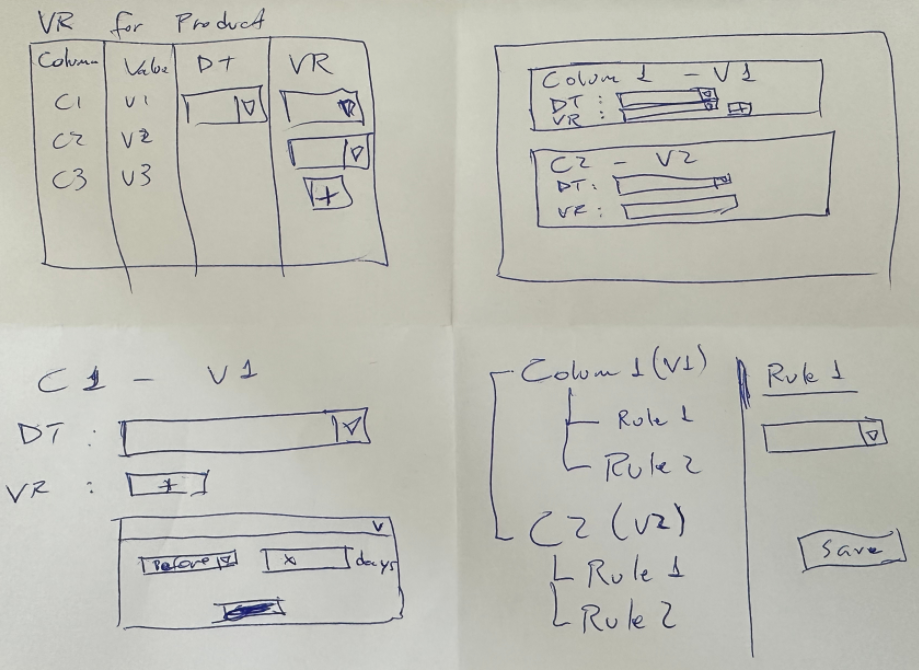 VR for Product
Column Value DT VR
C1 V1
C2 V2
C3 V3
+
Column 1 - V1
DT :
VR : +
C2 - V2
DT :
VR :
C1 - V1
DT :
VR : +
V
Before x days
Column 1 (V1)
Rule 1
Rule 2
C2 (V2)
Rule 1
Rule 2
Rule 1
Save